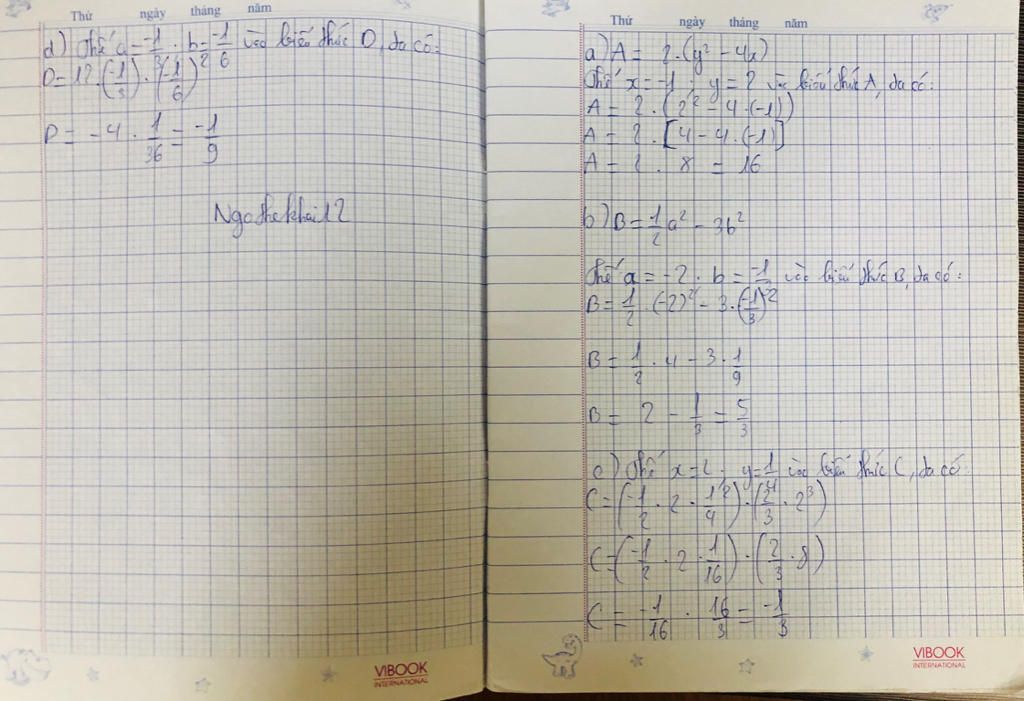 Thứ ngày tháng năm
d) Thế a = -1/3 ; b = -1/6 vào biểu thức D, ta có:
D = 12 . (-1/3) . (-1/6)²
D = -4 . 1/36 = -1/9
Ngothekhai12
VIBOOK
INTERNATIONAL
Thứ ngày tháng năm
a) A = 2 . (y² - 4x)
Thế x = -1 ; y = 2 vào biểu thức A, ta có:
A = 2 . (2² - 4 . (-1))
A = 2 . [4 - 4 . (-1)]
A = 2 . 8 = 16
b) B = 1/2 a² - 3b²
Thế a = -2 ; b = -1/3 vào biểu thức B, ta có:
B = 1/2 . (-2)² - 3 . (-1/3)²
B = 1/2 . 4 - 3 . 1/9
B = 2 - 1/3 = 5/3
c) Thế x = 2 ; y = 1/4 vào biểu thức C, ta có
C = (-1/2 . 2 . 1/4²) . (2/3 . 2³)
C = (-1/2 . 2 . 1/16) . (2/3 . 8)
C = -1/16 . 16/3 = -1/3
VIBOOK
INTERNATIONAL